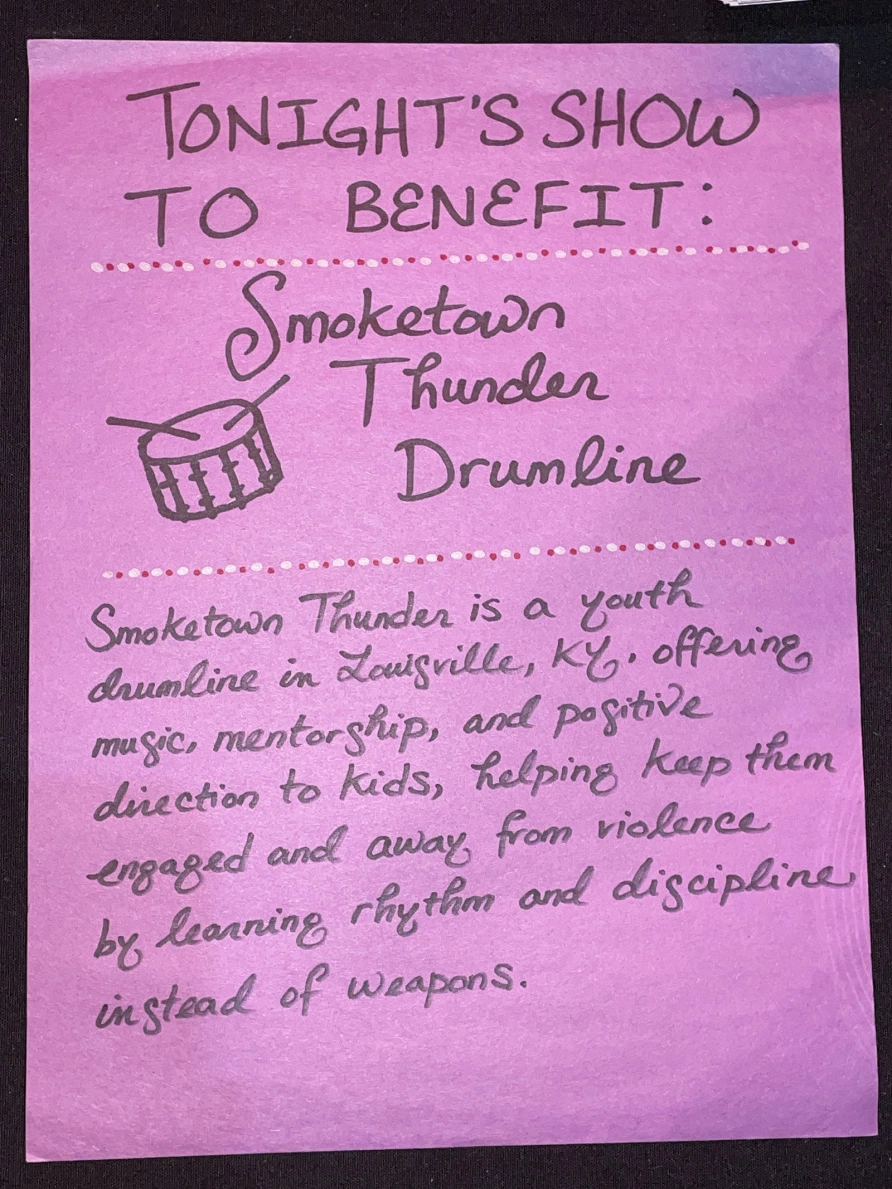 TONIGHT'S SHOW
TO BENEFIT:
Smoketown
Thunder
Drumline
Smoketown Thunder is a youth
drumline in Louisville, KY. offering
music, mentorship, and positive
direction to kids, helping keep them
engaged and away from violence
by learning rhythm and discipline
instead of weapons.